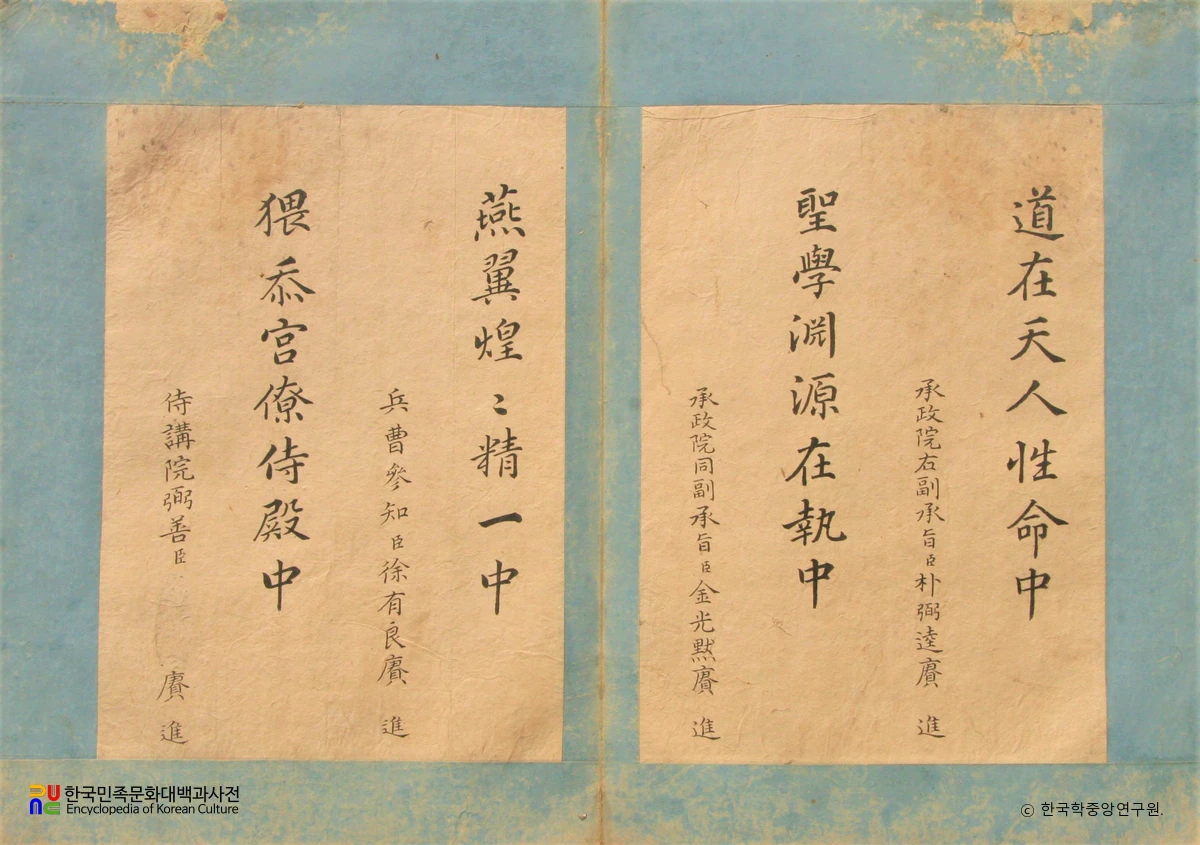 道在天人性命中
承政院右副承旨臣朴弼逵賡 進
聖學淵源在執中
承政院同副承旨臣金光默賡 進
燕翼煌〻精一中
兵曹參知臣徐有良賡 進
猥忝宮僚侍殿中
侍講院弼善臣 賡 進
한국민족문화대백과사전
Encyclopedia of Korean Culture
ⓒ 한국학중앙연구원.